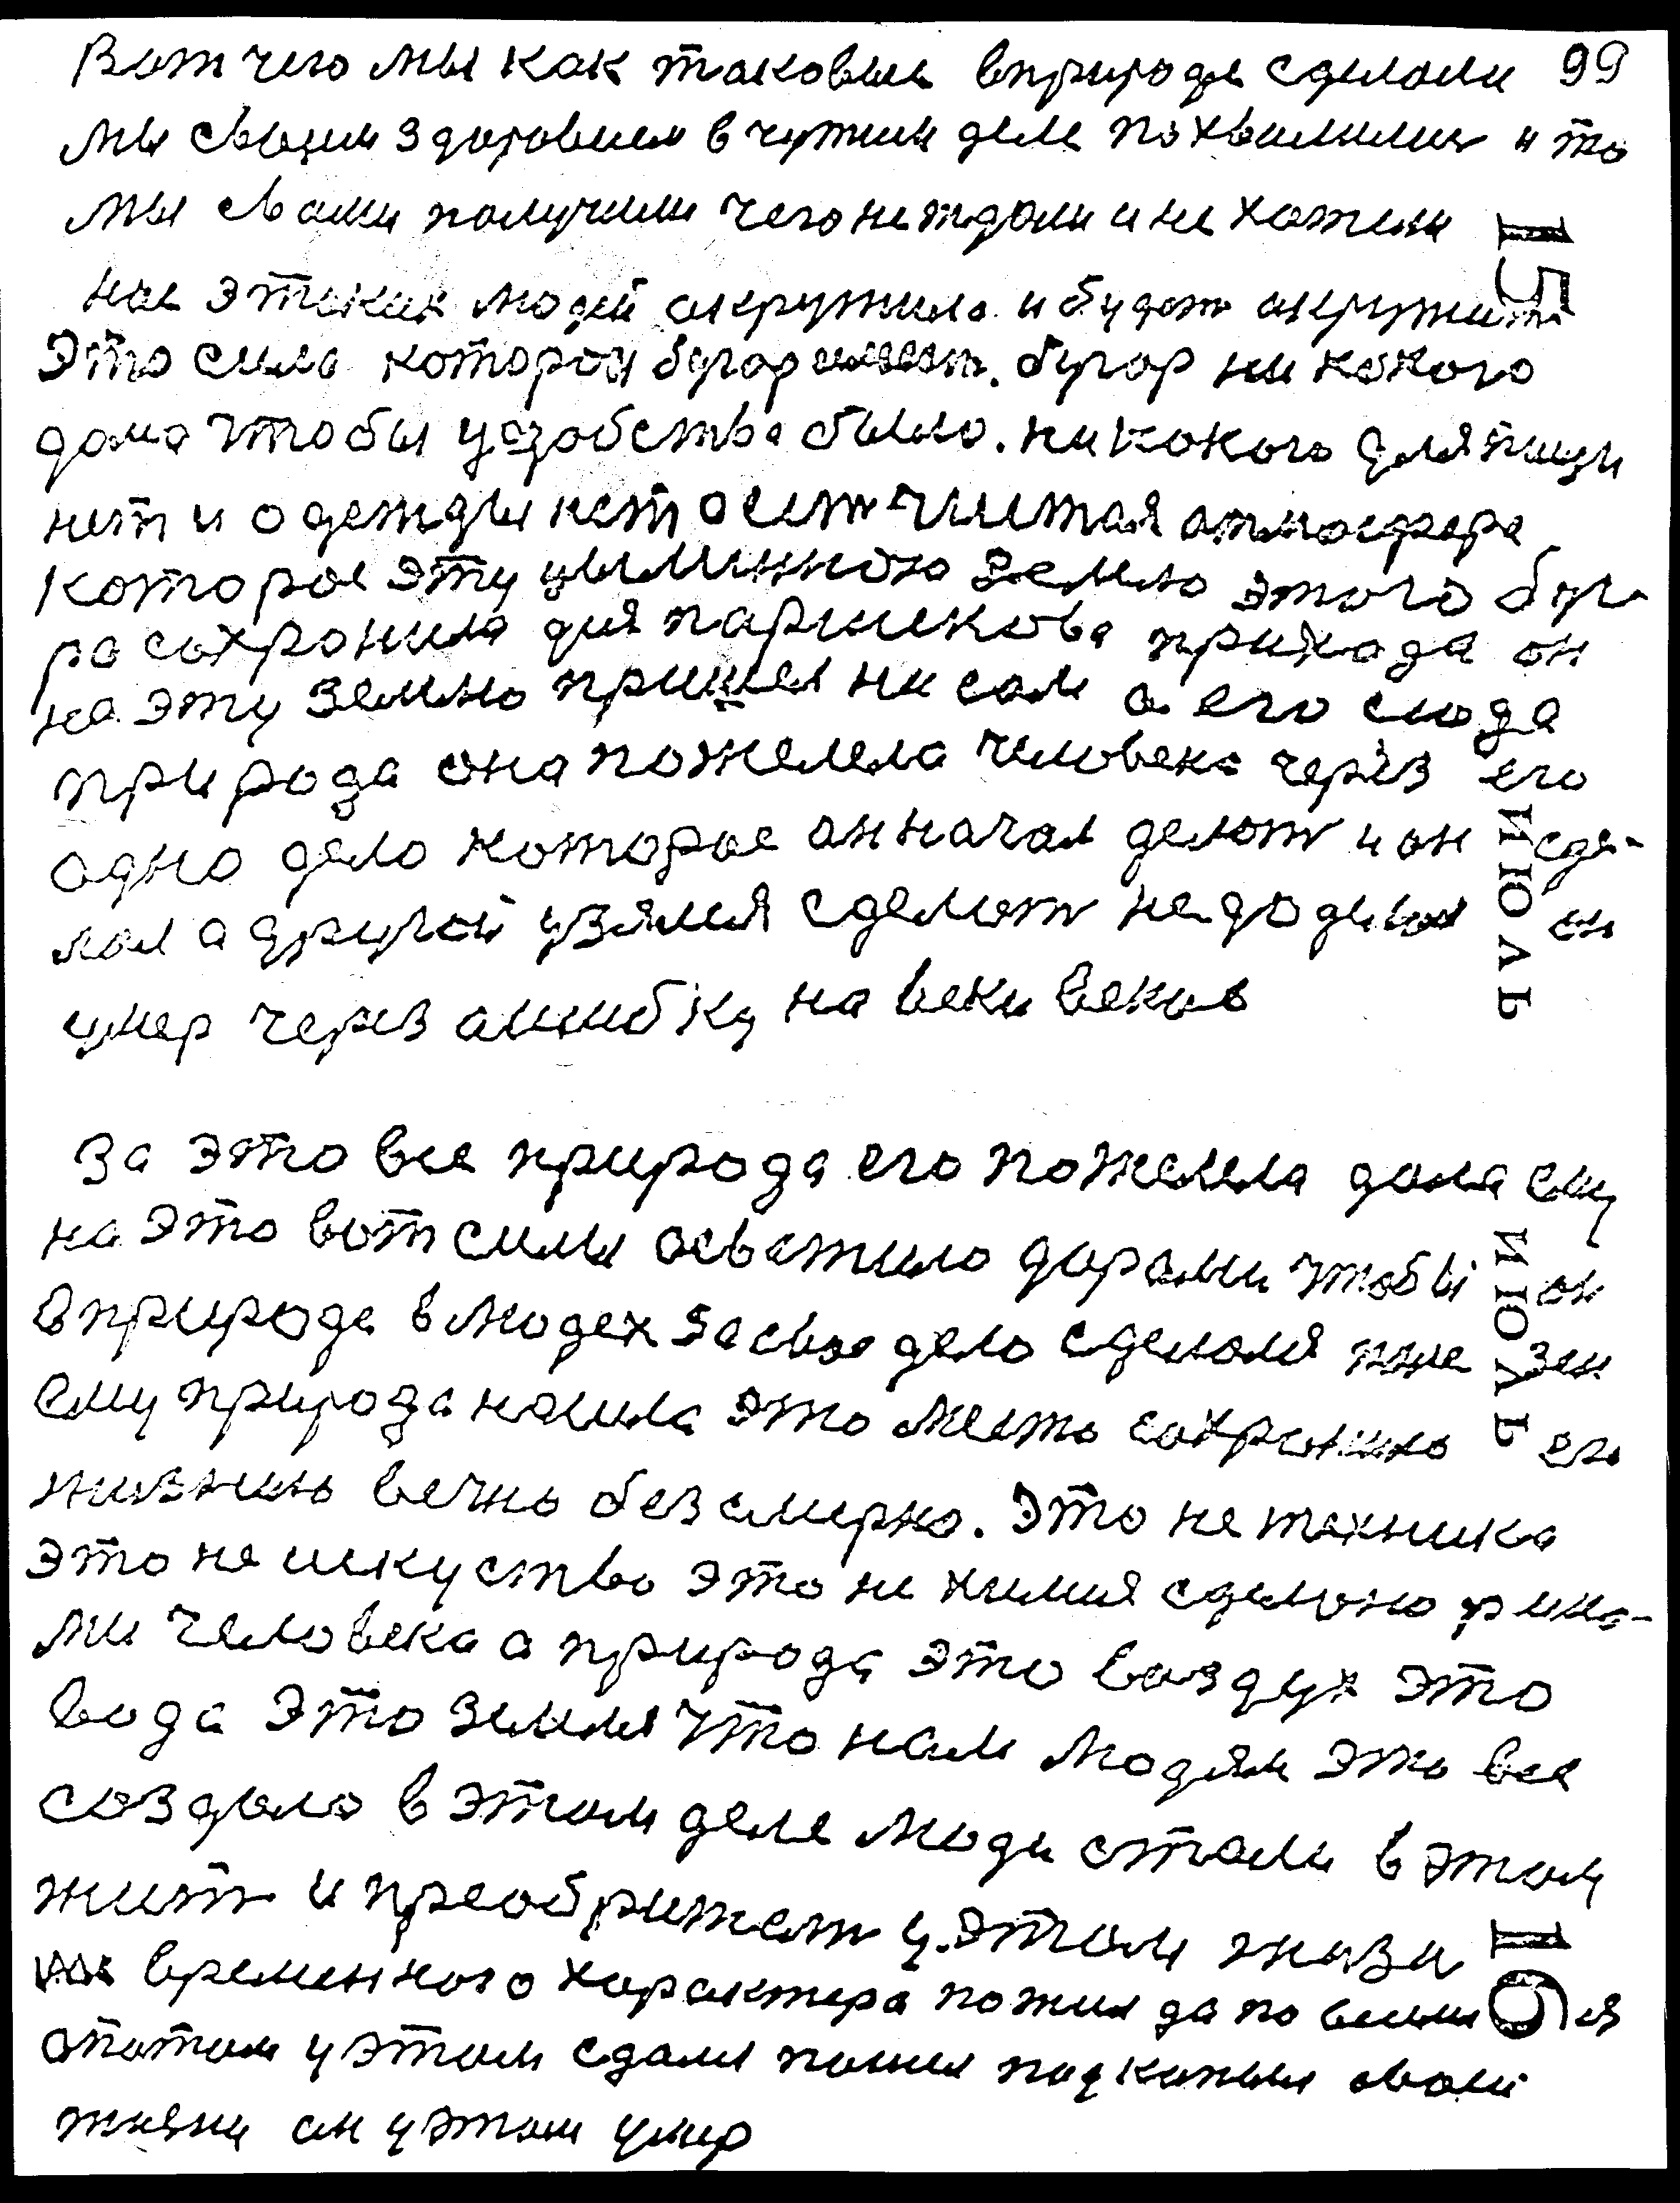 Вот чего мы как таковые вприроде сделали 99
мы своим здоровием в чужим деле похвалились и то
мы с вами получили чего не ждали и не хотели
нас этаких людей акружило и будет акружит 15
Это сило которой бугор имеет. бугор ни какого
дома чтобы удобства было. никокого для пищи
нет и одежды нет о ест чистая атмосфера
которое эту цылинною землю этого буг-
ра сохронила для паршекова прихода он
на эту землю пришел ни сам а его сюда
природа она пожелела человека через его
одно дело которое аннначал делат и он сде-
лал а другой узялся сделат не доделал он
умер через ашибку на веки веков
ИЮЛЬ
За это все природа его пожелела дала ему
на это вот силы осветило дарами чтобы он
вприроде в людех за свое дело сделался
ему природа нашла это место сохранило его
жизнию вечно безсмерно. Это не техника
это не искуство это не химия сделоно рука-
ми человека а природа это воздух это
вода это земля что нам людям это все
создало в этом деле люди стали в этом
жит и преобрижат у этом жизн
временного характера пожил да по
апотом у этом сдался пошел под капыл своей
жизни он у этом умер
ИЮЛЬ
16